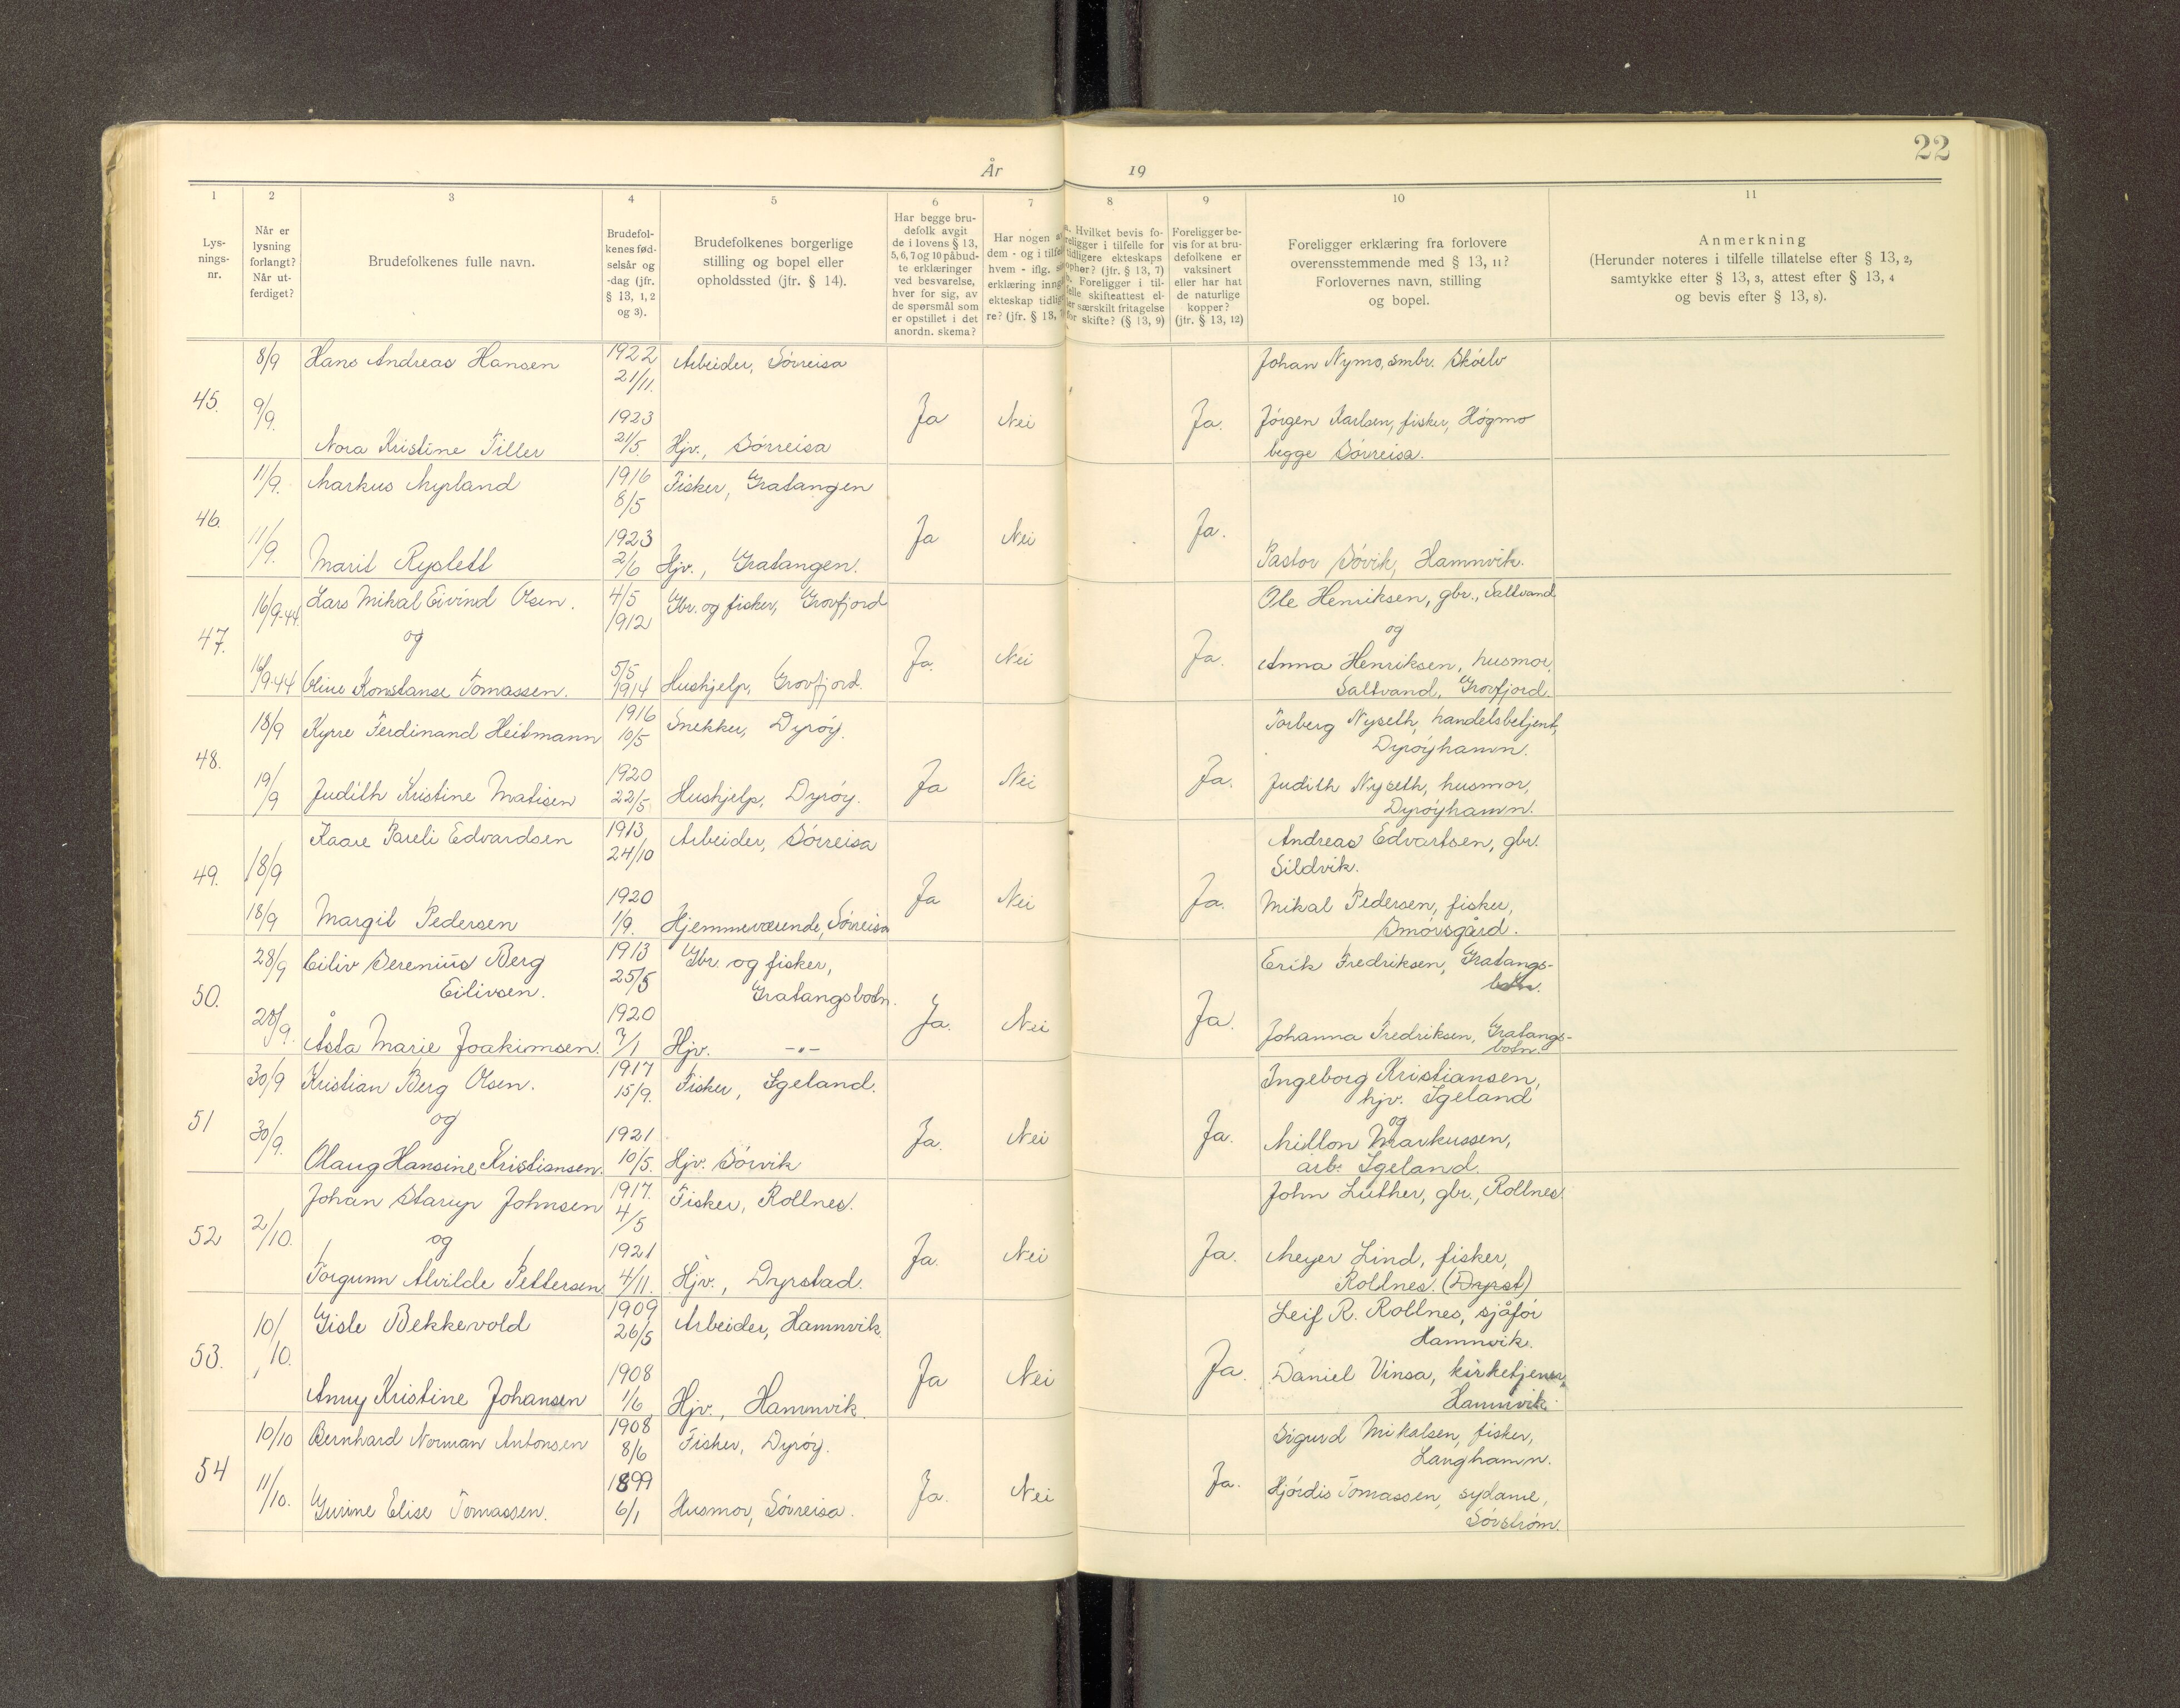 22
År 19
1 2 3 4 5 6 7 8 9 10 11
Lys-
nings-
nr.
Når er
lysning
forlangt?
Når ut-
ferdiget?
Brudefolkenes fulle navn.
Brudefol-
kenes fød-
selsår og
-dag (jfr.
§ 13, 1, 2
og 3).
Brudefolkenes borgerlige
stilling og bopel eller
opholdssted (jfr. § 14).
Har begge bru-
defolk avgit
de i lovens § 13,
5, 6, 7 og 10 påbud-
te erklæringer
ved besvarelse,
hver for sig, av
de spørsmål som
er opstillet i det
anordn. skema?
Har nogen av
dem - og i tilfel
hvem - iflg. s
erklæring inng
ekteskap tidlig
re? (jfr. § 13,
a. Hvilket bevis fo-
religger i tilfelle for
tidligere ekteskaps
ophør? (jfr. § 13, 7)
b. Foreligger i til-
felle skifteattest el-
ler særskilt fritagelse
for skifte? (§ 13, 9)
Foreligger be-
vis for at bru-
defolkene er
vaksinert
eller har hat
de naturlige
kopper?
(jfr. § 13, 12)
Foreligger erklæring fra forlovere
overensstemmende med § 13, 11?
Forlovernes navn, stilling
og bopel.
Anmerkning
(Herunder noteres i tilfelle tillatelse efter § 13, 2,
samtykke efter § 13, 3, attest efter § 13, 4
og bevis efter § 13, 8).
8/9 Hans Andreas Hansen 1922 Arbeider, Sörreisa Johan Nymo, smbr. Skóelv
21/11.
45. 9/9. 1923 Ja Nei Ja. Jörgen Karlsen, fisker, Högmo
Nora Kristine Tiller 21/5. Hjv., Sörreisa begge Sörreisa.
11/9. Markus Myrland 1916 Fisker, Gratangen
8/5
46. 11/9. 1923 Ja Nei Ja.
Marit Ryslett 2/6 Hjv., Gratangen. Pastor Sövik, Hamnvik.
16/9-44. Lars Mikal Eivind Olsen. 4/5 Gbr. og fisker, Grovfjord Ole Henriksen, gbr., Saltvand
1912
47. og Ja. Nei Ja. og
5/5 Anna Henriksen, husmor,
16/9-44 Oline Konstanse Tomassen. 1914 Hushjelp, Grovfjord. Saltvand, Grovfjord.
18/9 Kyrre Ferdinand Heitmann 1916 Snekker, Dyröy. Torberg Nyseth, handelsbetjent,
10/5 Dyröyhamn.
48. 19/9 1920 Ja Nei Ja. Judith Nyseth, husmor,
Judith Kristine Matisen 22/5 Hushjelp, Dyröy. Dyröyhamn.
Kaare Pareli Edvardsen 1913 Arbeider, Sörreisa Andreas Edvartsen, gbr.
24/10 Sildvik.
49. 18/9 1920 Ja Nei Ja. Mikal Pedersen, fisker,
18/9 Margit Pedersen 1/9. Hjemmeværende, Sörreisa Smörsgård.
28/9 Eiliv Berenius Berg 1913 Gbr. og fisker, Erik Fredriksen, Gratangs-
Eilivsen. 25/5 Gratangsbotn. botn.
50. 28/9. 1920 Ja. Nei Ja. Johanna Fredriksen, Gratangs-
Åsta Marie Joakimsen. 7/1 Hjv. -"- botn.
30/9 Kristian Berg Olsen. 1917 Fisker, Igeland. Ingeborg Kristiansen,
15/9. hjv. Igeland
51 30/9. og 1921 Ja. Nei Ja. og
Milton Markussen,
Olaug Hansine Kristiansen. 10/5. Hjv. Sörvik arb. Igeland.
Johan Starup Johnsen 1917. Fisker, Rollnes. John Luther, gbr., Rollnes.
4/5
52 2/10. og 1921 Ja. Nei Ja. Meyer Lind, fisker,
Torgunn Alvilde Pettersen 4/11. Hjv., Dyrstad. Rollnes. (Dyrst)
10/10. Gisle Bekkevold 1909 Arbeider, Hamnvik. Leif R. Rollnes, sjåför
26/5 Hamnvik.
53. 1908 Ja Nei Ja. Daniel Vinsa, kirketjener,
Anny Kristine Johansen 1/6 Hjv., Hamnvik. Hamnvik.
10/10 Bernhard Norman Antonsen 1908 Fisker, Dyröy. Sigurd Mikalsen, fisker,
8/6 Langhamn.
54 11/10. 1899 Ja. Nei Ja. Hjördis Tomassen, sydame,
Gurine Elise Tomassen. 6/1 Husmor, Sörreisa. Sörström.